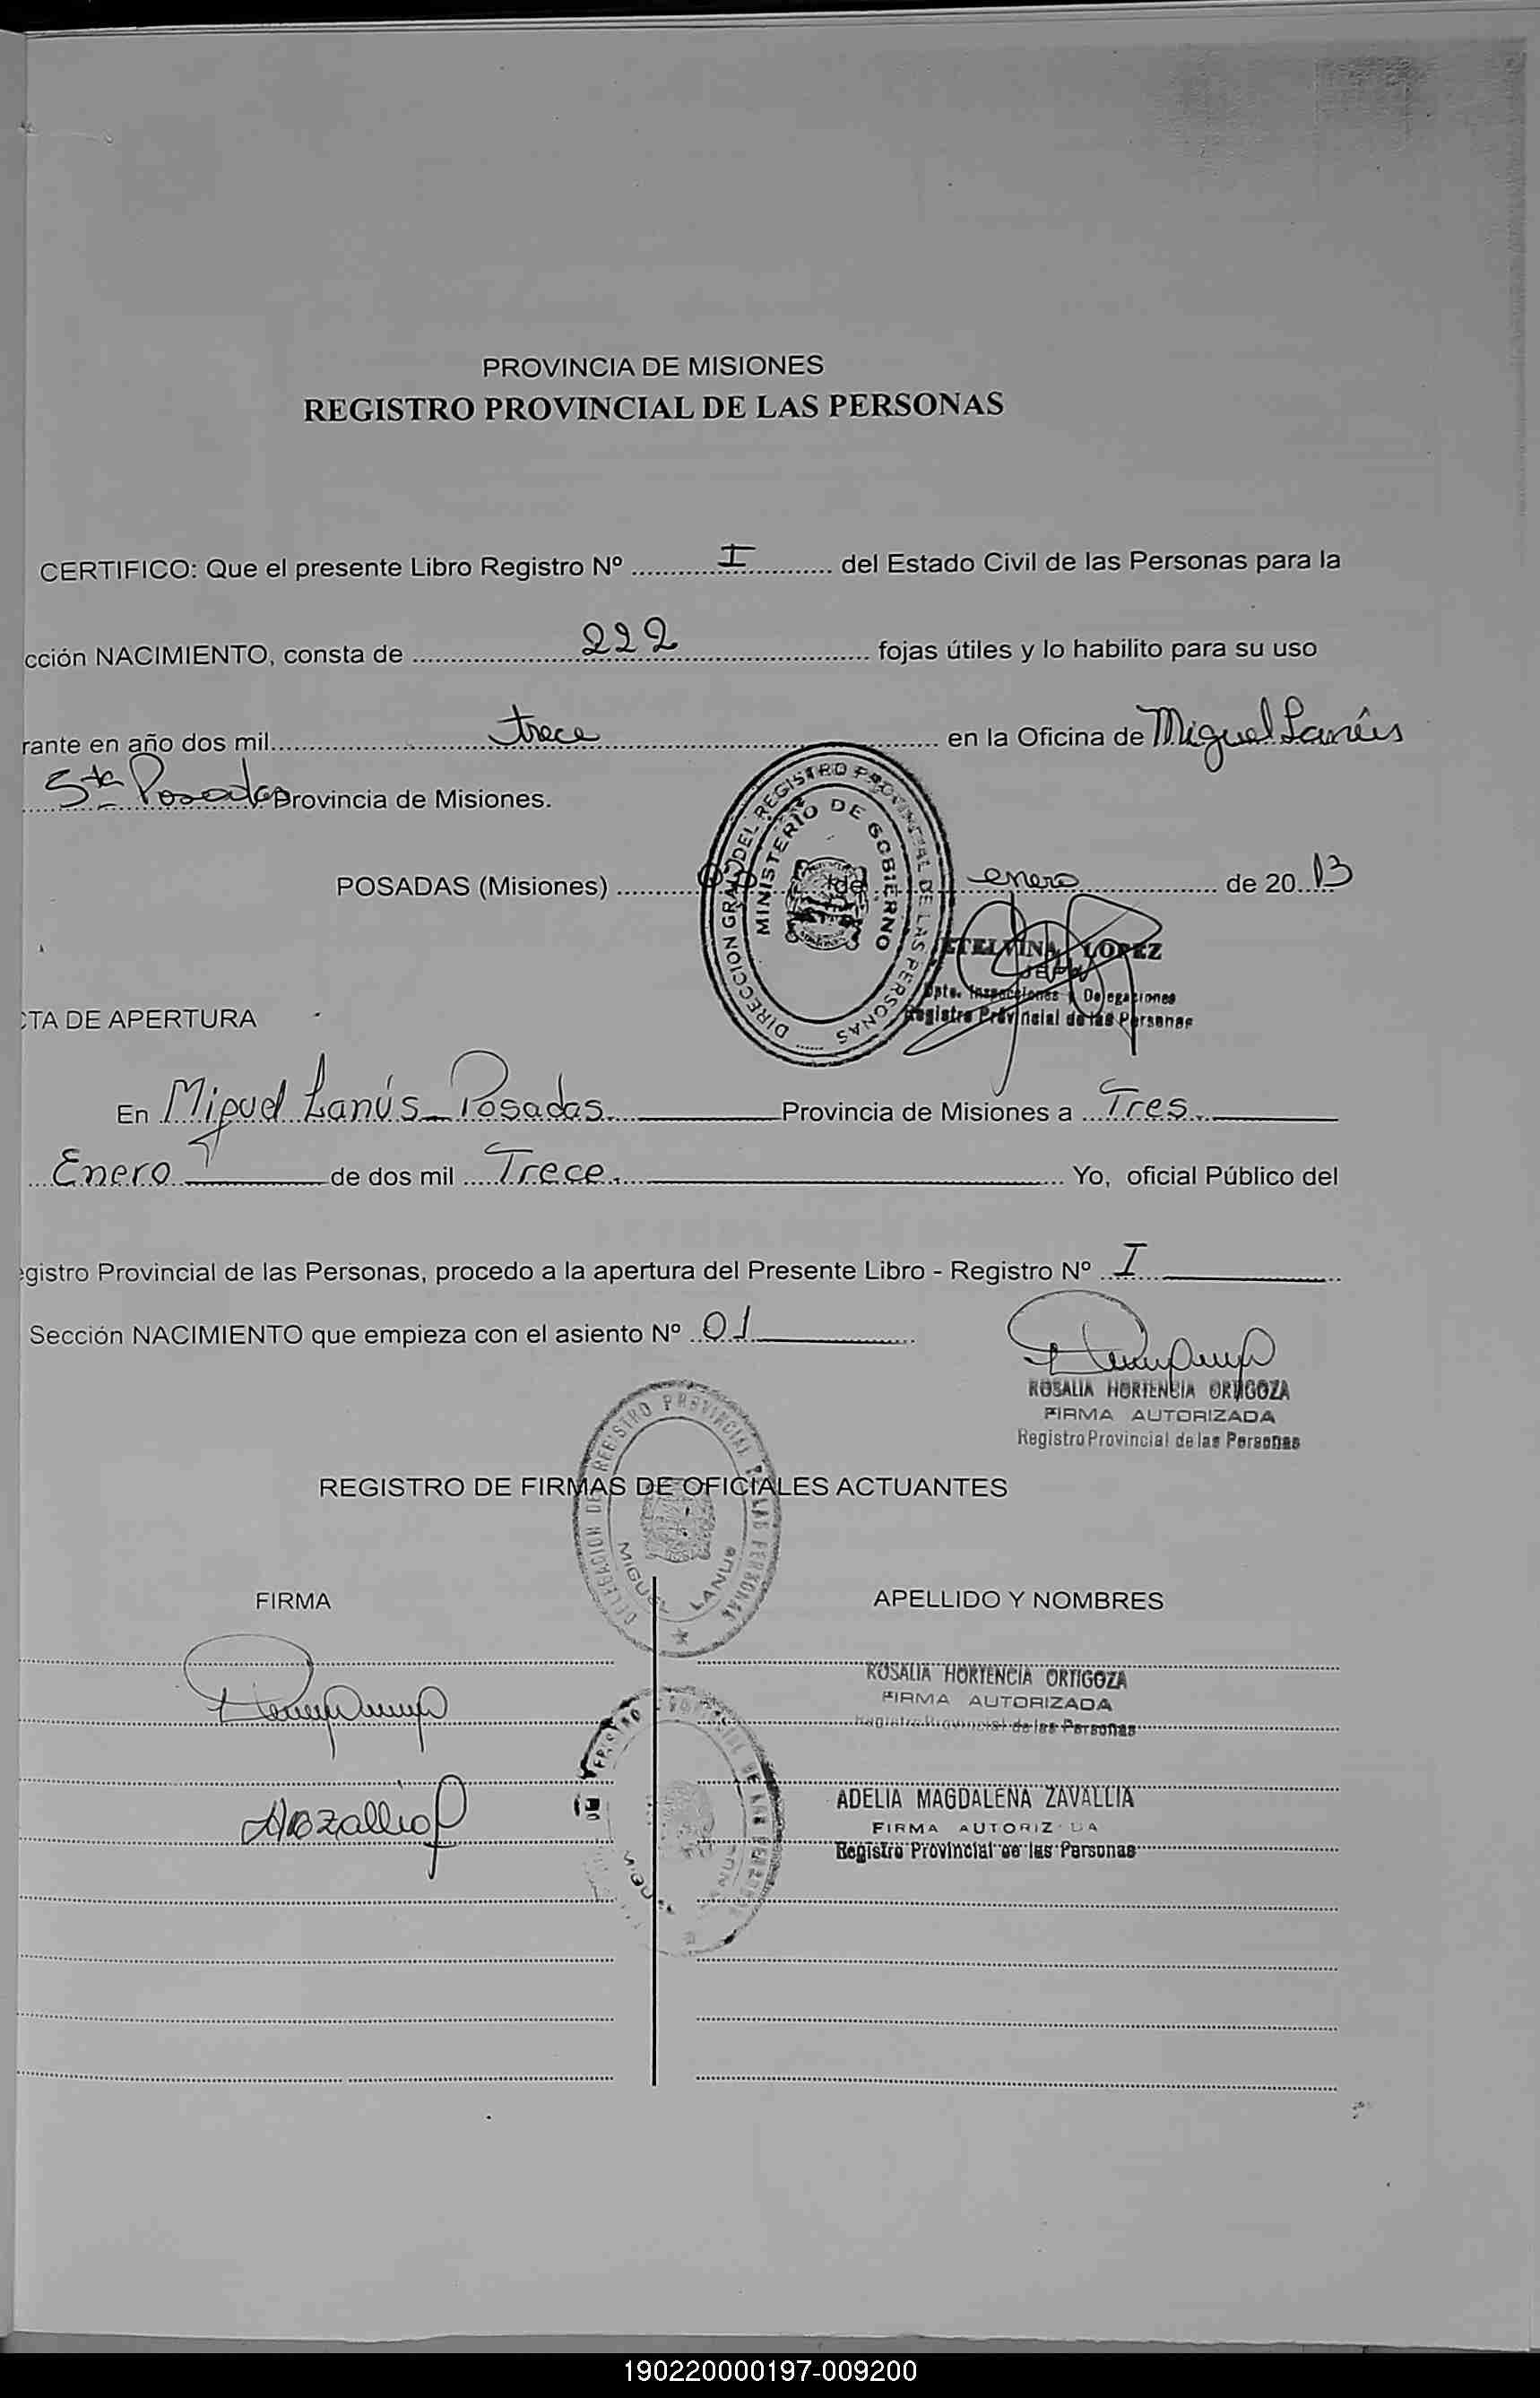 PROVINCIA DE MISIONES
REGISTRO PROVINCIAL DE LAS PERSONAS
CERTIFICO: Que el presente Libro Registro Nº I del Estado Civil de las Personas para la
cción NACIMIENTO, consta de 222 fojas útiles y lo habilito para su uso
rante en año dos mil trece en la Oficina de Miguel Lanús
Posadas Provincia de Misiones.
POSADAS (Misiones) de enero de 2013
DIRECCION GRAL DEL REGISTRO PROVINCIAL DE LAS PERSONAS
MINISTERIO DE GOBIERNO
ETELVINA LOPEZ
JEFA
Dpto. Inspecciones y Delegaciones
Registro Provincial de las Personas
CTA DE APERTURA
En Miguel Lanús - Posadas Provincia de Misiones a Tres
Enero de dos mil Trece. Yo, oficial Público del
egistro Provincial de las Personas, procedo a la apertura del Presente Libro - Registro Nº I
Sección NACIMIENTO que empieza con el asiento Nº 01
ROSALIA HORTENCIA ORTIGOZA
FIRMA AUTORIZADA
Registro Provincial de las Personas
DELEGACION DEL REGISTRO PROVINCIAL DE LAS PERSONAS
MIGUEL LANUS
REGISTRO DE FIRMAS DE OFICIALES ACTUANTES
FIRMA APELLIDO Y NOMBRES
ROSALIA HORTENCIA ORTIGOZA
FIRMA AUTORIZADA
Registro Provincial de las Personas
ADELIA MAGDALENA ZAVALLIA
FIRMA AUTORIZ DA
Registro Provincial de las Personas
190220000197-009200